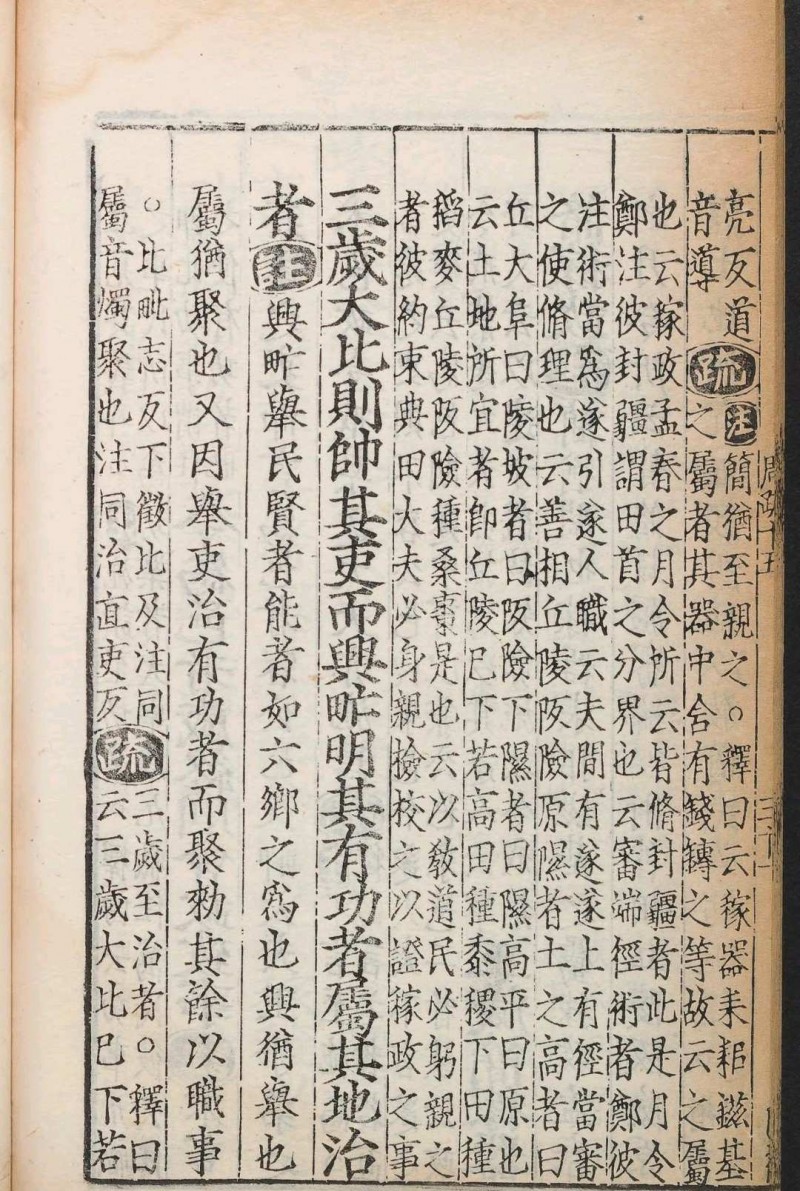 亮反道
音導
疏
注
簡猶至親之○釋曰云稼器耒耜鎡基
之屬者其器中含有錢鎛之等故云之屬
也云稼政孟春之月令所云皆脩封疆者此是月令
鄭注彼封疆謂田首之分界也云審端徑術者鄭彼
注術當為遂引遂人職云夫間有遂遂上有徑當審
之使脩理也云善相丘陵阪險原隰者土之高者曰
丘大阜曰陵坡者曰阪險下隰者曰隰高平曰原也
云土地所宜者即丘陵已下若高田種黍稷下田種
稻麥丘陵阪險種桑棗是也云以教道民必躬親之
者彼約束典田大夫必身親撿校之以證稼政之事
三歲大比則帥其吏而興甿明其有功者屬其地治
者注興甿舉民賢者能者如六鄉之為也興猶舉也
屬猶聚也又因舉吏治有功者而聚勑其餘以職事
○比毗志反下徵比及注同
屬音燭聚也注同治直吏反
疏
三歲至治者○釋曰
云三歲大比已下若